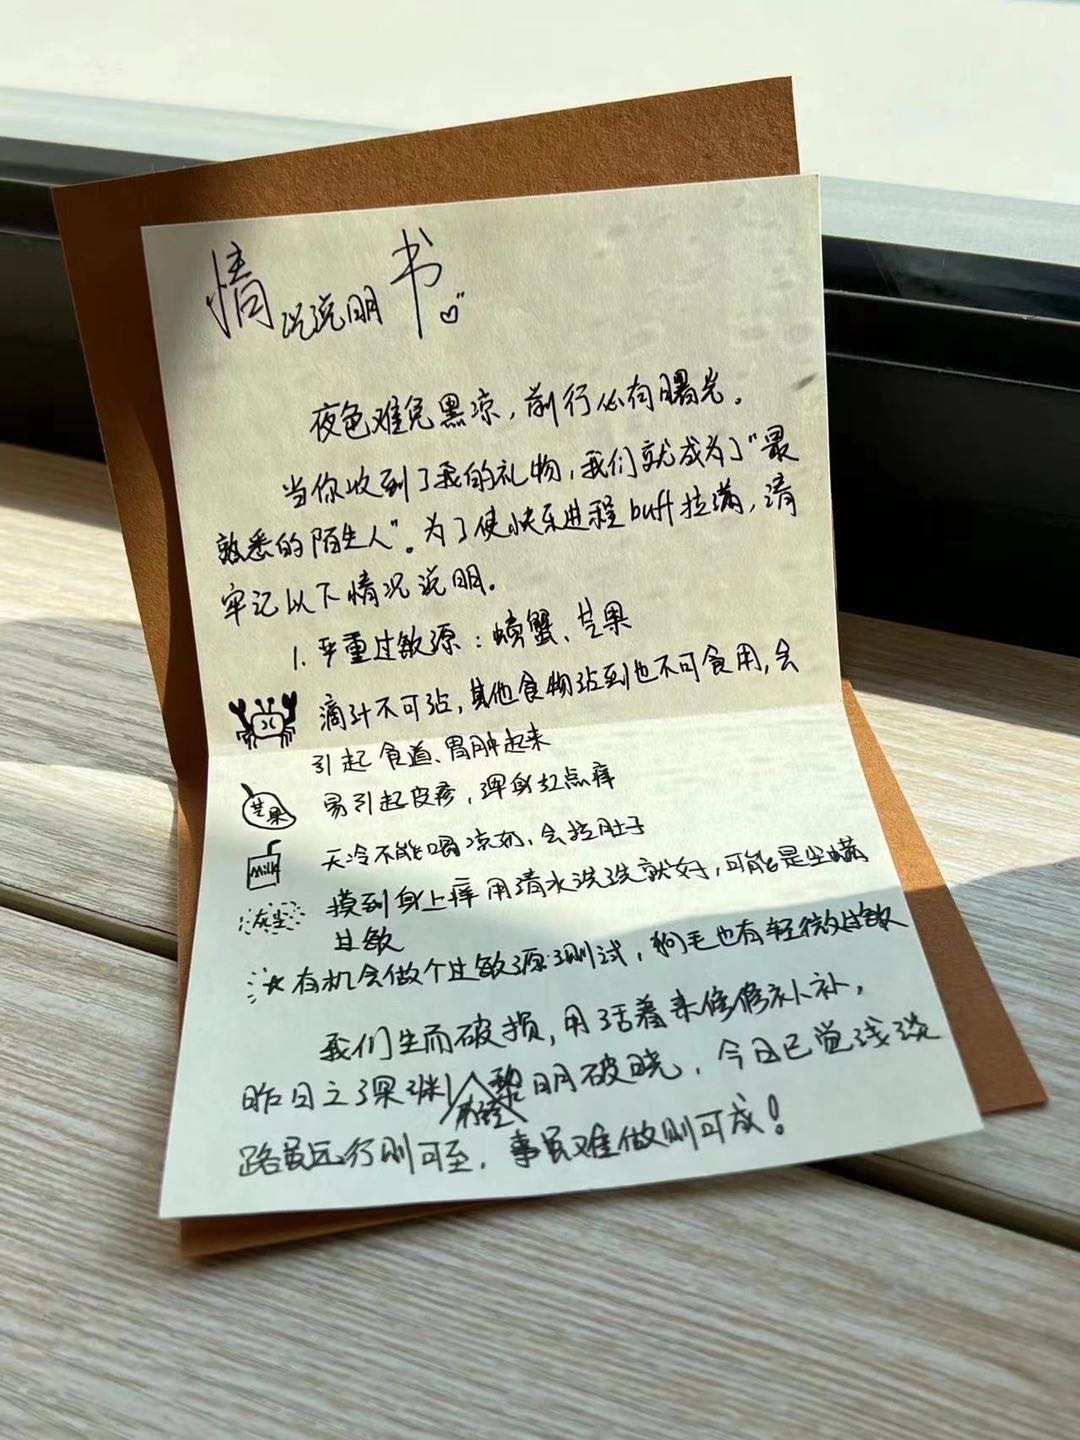 情况说明书
夜色难免黑凉，前行必有曙光。
当你收到了我的礼物，我们就成为了“最
熟悉的陌生人”。为了使快乐进程buff拉满，请
牢记以下情况说明。
1. 严重过敏源：螃蟹、芒果
滴汁不可沾，其他食物沾到也不可食用，会
引起食道、胃肿起来
芒果 易引起皮疹，浑身红点痒
Milk 天冷不能喝凉奶，会拉肚子
灰尘 摸到身上痒用清水洗洗就好，可能是尘螨
过敏
有机会做个过敏源测试，狗毛也有轻微过敏
我们生而破损，用活着来修修补补，
昨日之深渊，黎明破晓，今日已觉浅谈
路虽远行则可至，事虽难做则可成！